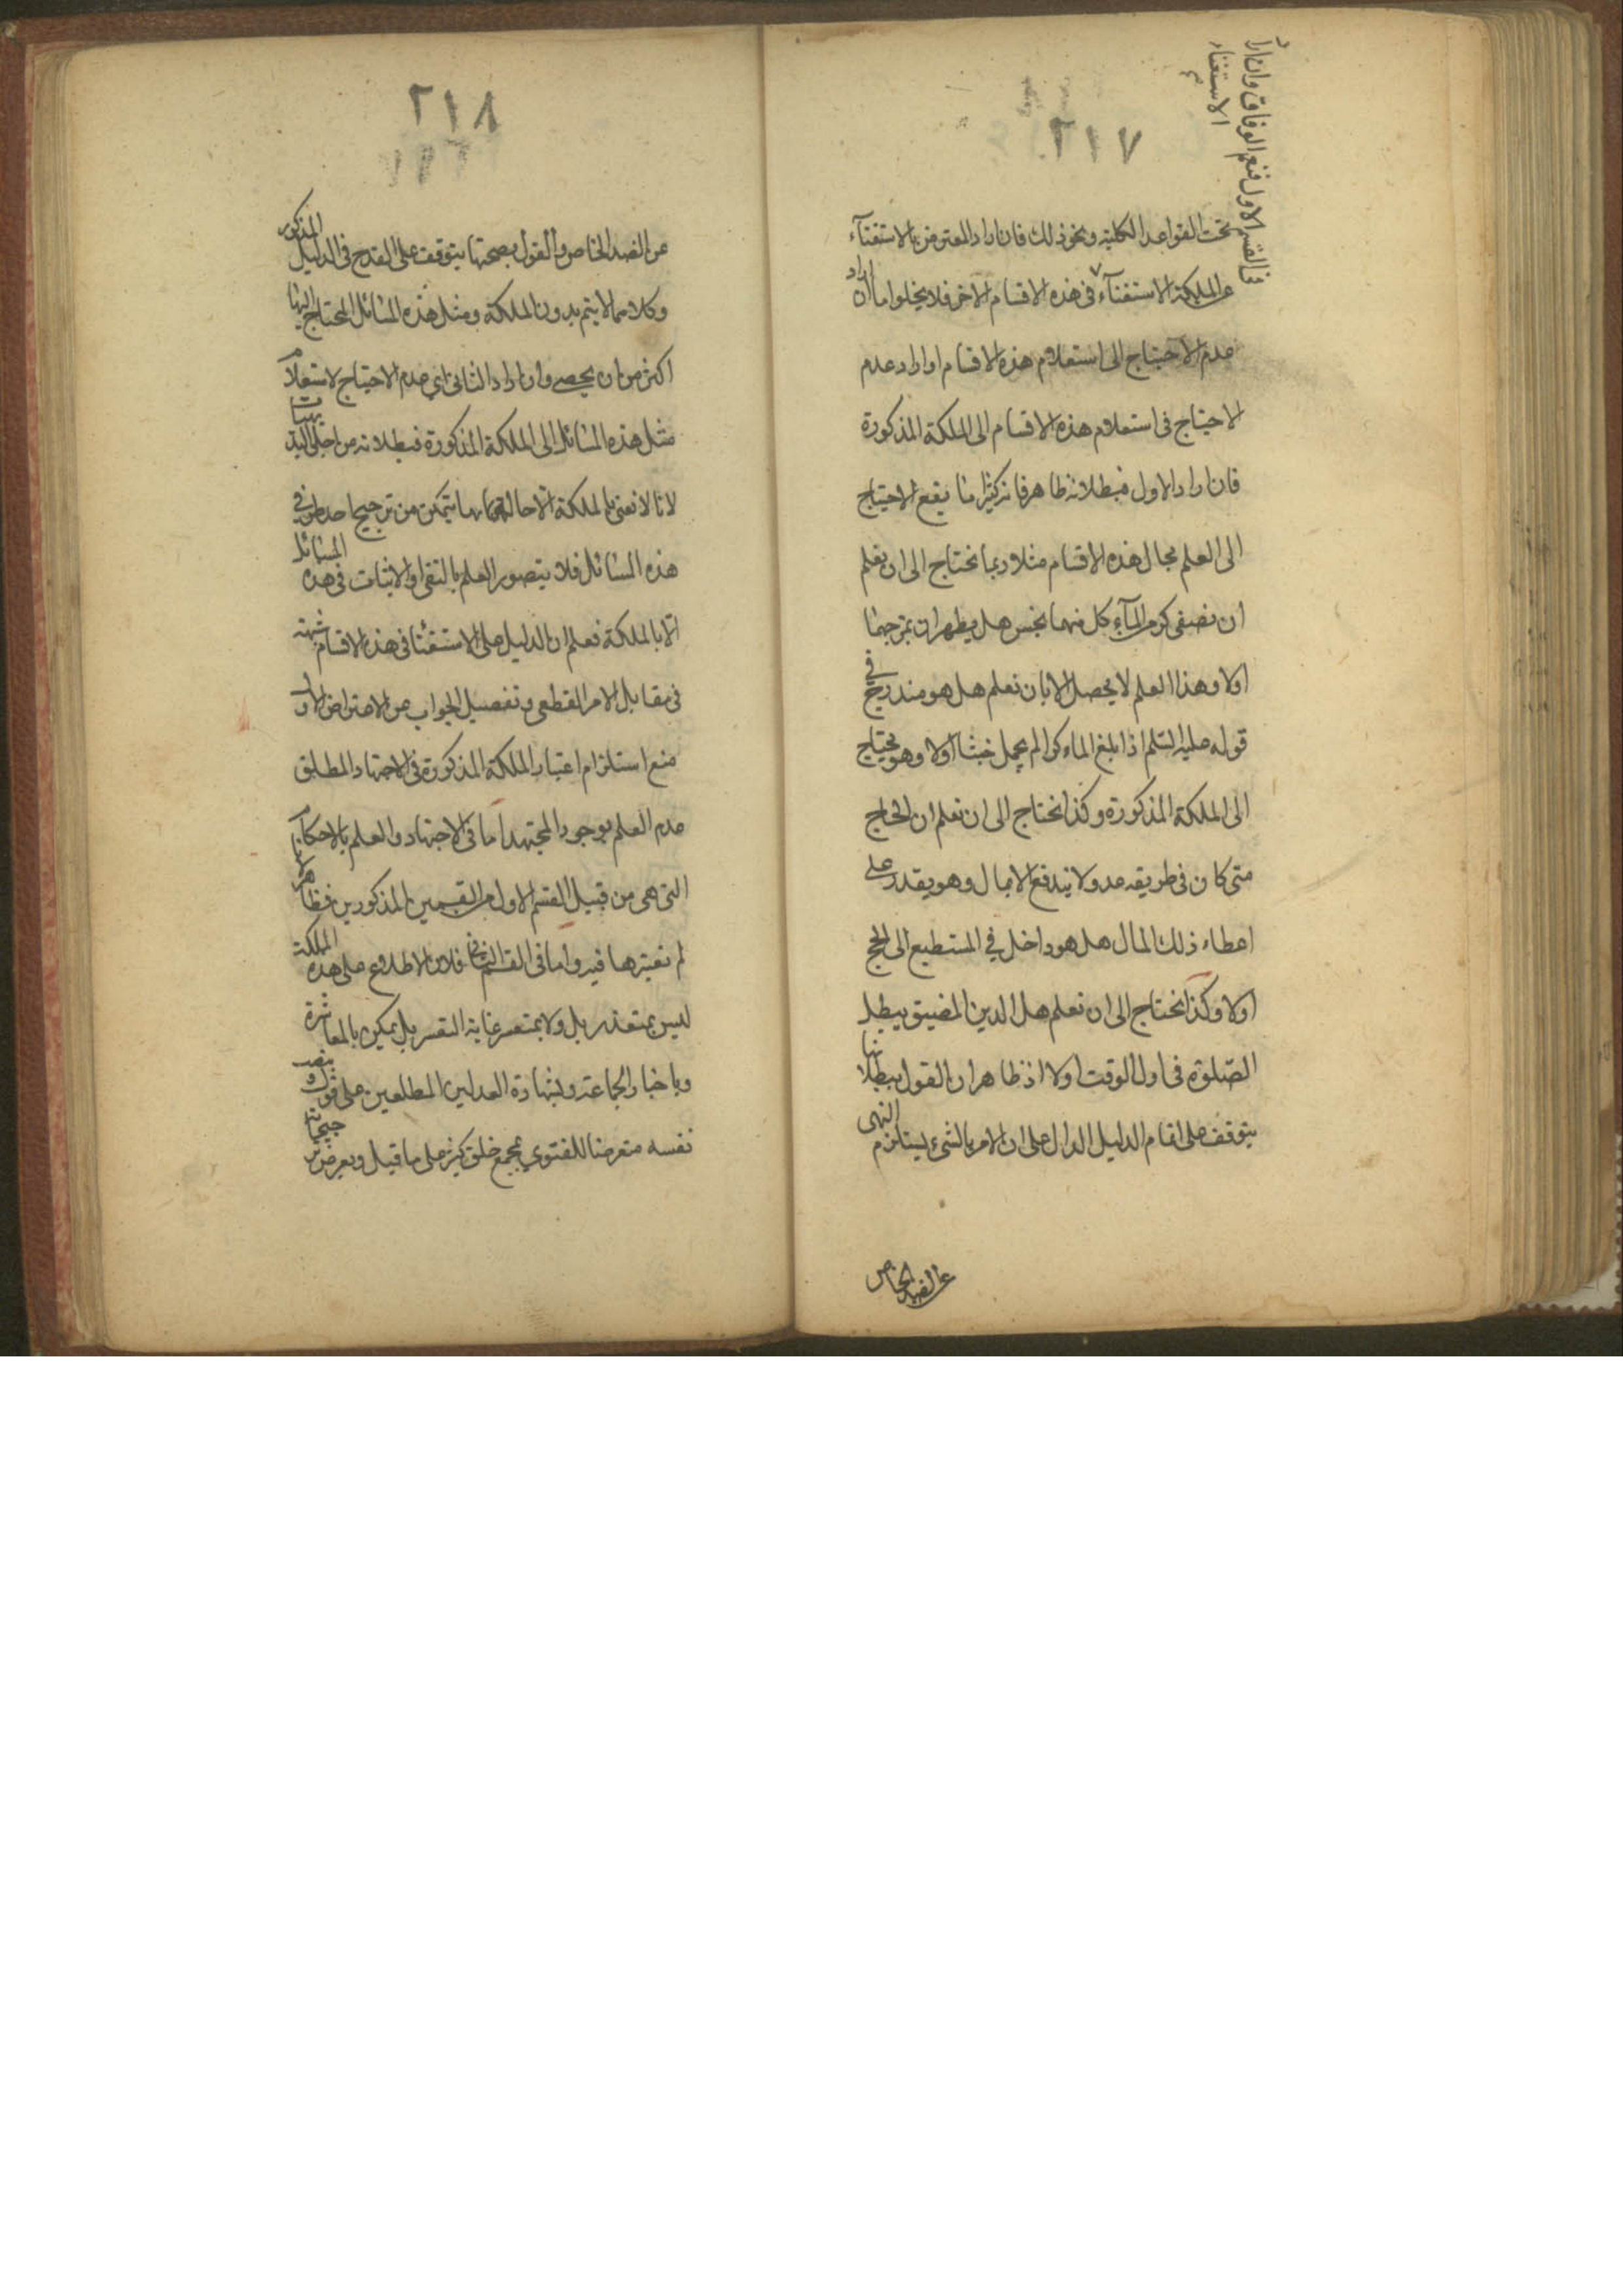 ٢١٧
في القسم الاول فنعم الوفاق وان اراد
الاستغناء
تحت القواعد الكلية ونحو ذلك فان اراد المعترض بالاستغنآء
عن الملكة الاستغنآء في هذه الاقسام الاخر فلا يخلوا اما ان اراد
عدم الاحتياج الى استعلام هذه الاقسام او اراد عدم
الاحتياج في استعلام هذه الاقسام الى الملكة المذكورة
فان اراد الاول فبطلانه ظاهر فانه كثيرا ما يقع الاحتياج
الى العلم بحال هذه الاقسام مثلا ربما نحتاج الى ان نعلم
ان نصفى كر من المآء كل منهما نجس هل يطهر ان بمزجهما
اولا وهذا العلم لا يحصل الا بان نعلم هل هو مندرج في
قوله عليه السلم اذا بلغ الماء كرا لم يحمل خبثا اولا وهو يحتاج
الى الملكة المذكورة وكذا نحتاج الى ان نعلم ان الحاج
متى كان في طريقه عدو لا يندفع الا بمال وهو يقدر على
اعطاء ذلك المال هل هو داخل في المستطيع الى الحج
اولا وكذا نحتاج الى ان نعلم هل الدين المضيق يبطل
الصلوة في اول الوقت اولا اذ ظاهر ان القول ببطلانها
يتوقف على اتمام الدليل الدال على ان الامر بالشئ يستلزم النهى
عن الضد الخاص
٢١٨
عن الضد الخاص والقول بصحتها يتوقف على القدح في الدليل المذكور
وكلاهما لا يتم بدون الملكة ومثل هذه المسائل المحتاج اليها
اكثر من ان يحصى وان اراد الثاني اي عدم الاحتياج لاستعلام
مثل هذه المسائل الى الملكة المذكورة فبطلانه من اجلى البديهيات
لانا لا نعنى بالملكة الا حالة بها يتمكن من ترجيح احد طرفي
هذه المسائل فلا يتصور العلم بالنفى او الاثبات في هذه المسائل
الا بالملكة فعلم ان الدليل على الاستغنا في هذه الاقسام شبهة
في مقابل الامر القطعى وتفصيل الجواب عن الاعتراض الاول
منع استلزام اعتبار الملكة المذكورة في الاجتهاد المطلق
عدم العلم بوجود المجتهد اما في الاجتهاد والعلم بالاحكام
التى هى من قبيل القسم الاول من القسمين المذكورين فظاهر لانا
لم نعتبرها فيه واما في القسم الثاني فلان الاطلاع على هذه الملكة
ليس بمتعذر بل ولا بمتعسر غاية التعسر بل يمكن بالمعاشرة
وباخبار الجماعة وبشهادة العدلين المطلعين على قول وبنصب
نفسه متعرضا للفتوي بمجمع خلق كثير على ما قيل وبعرض ترجيحاته